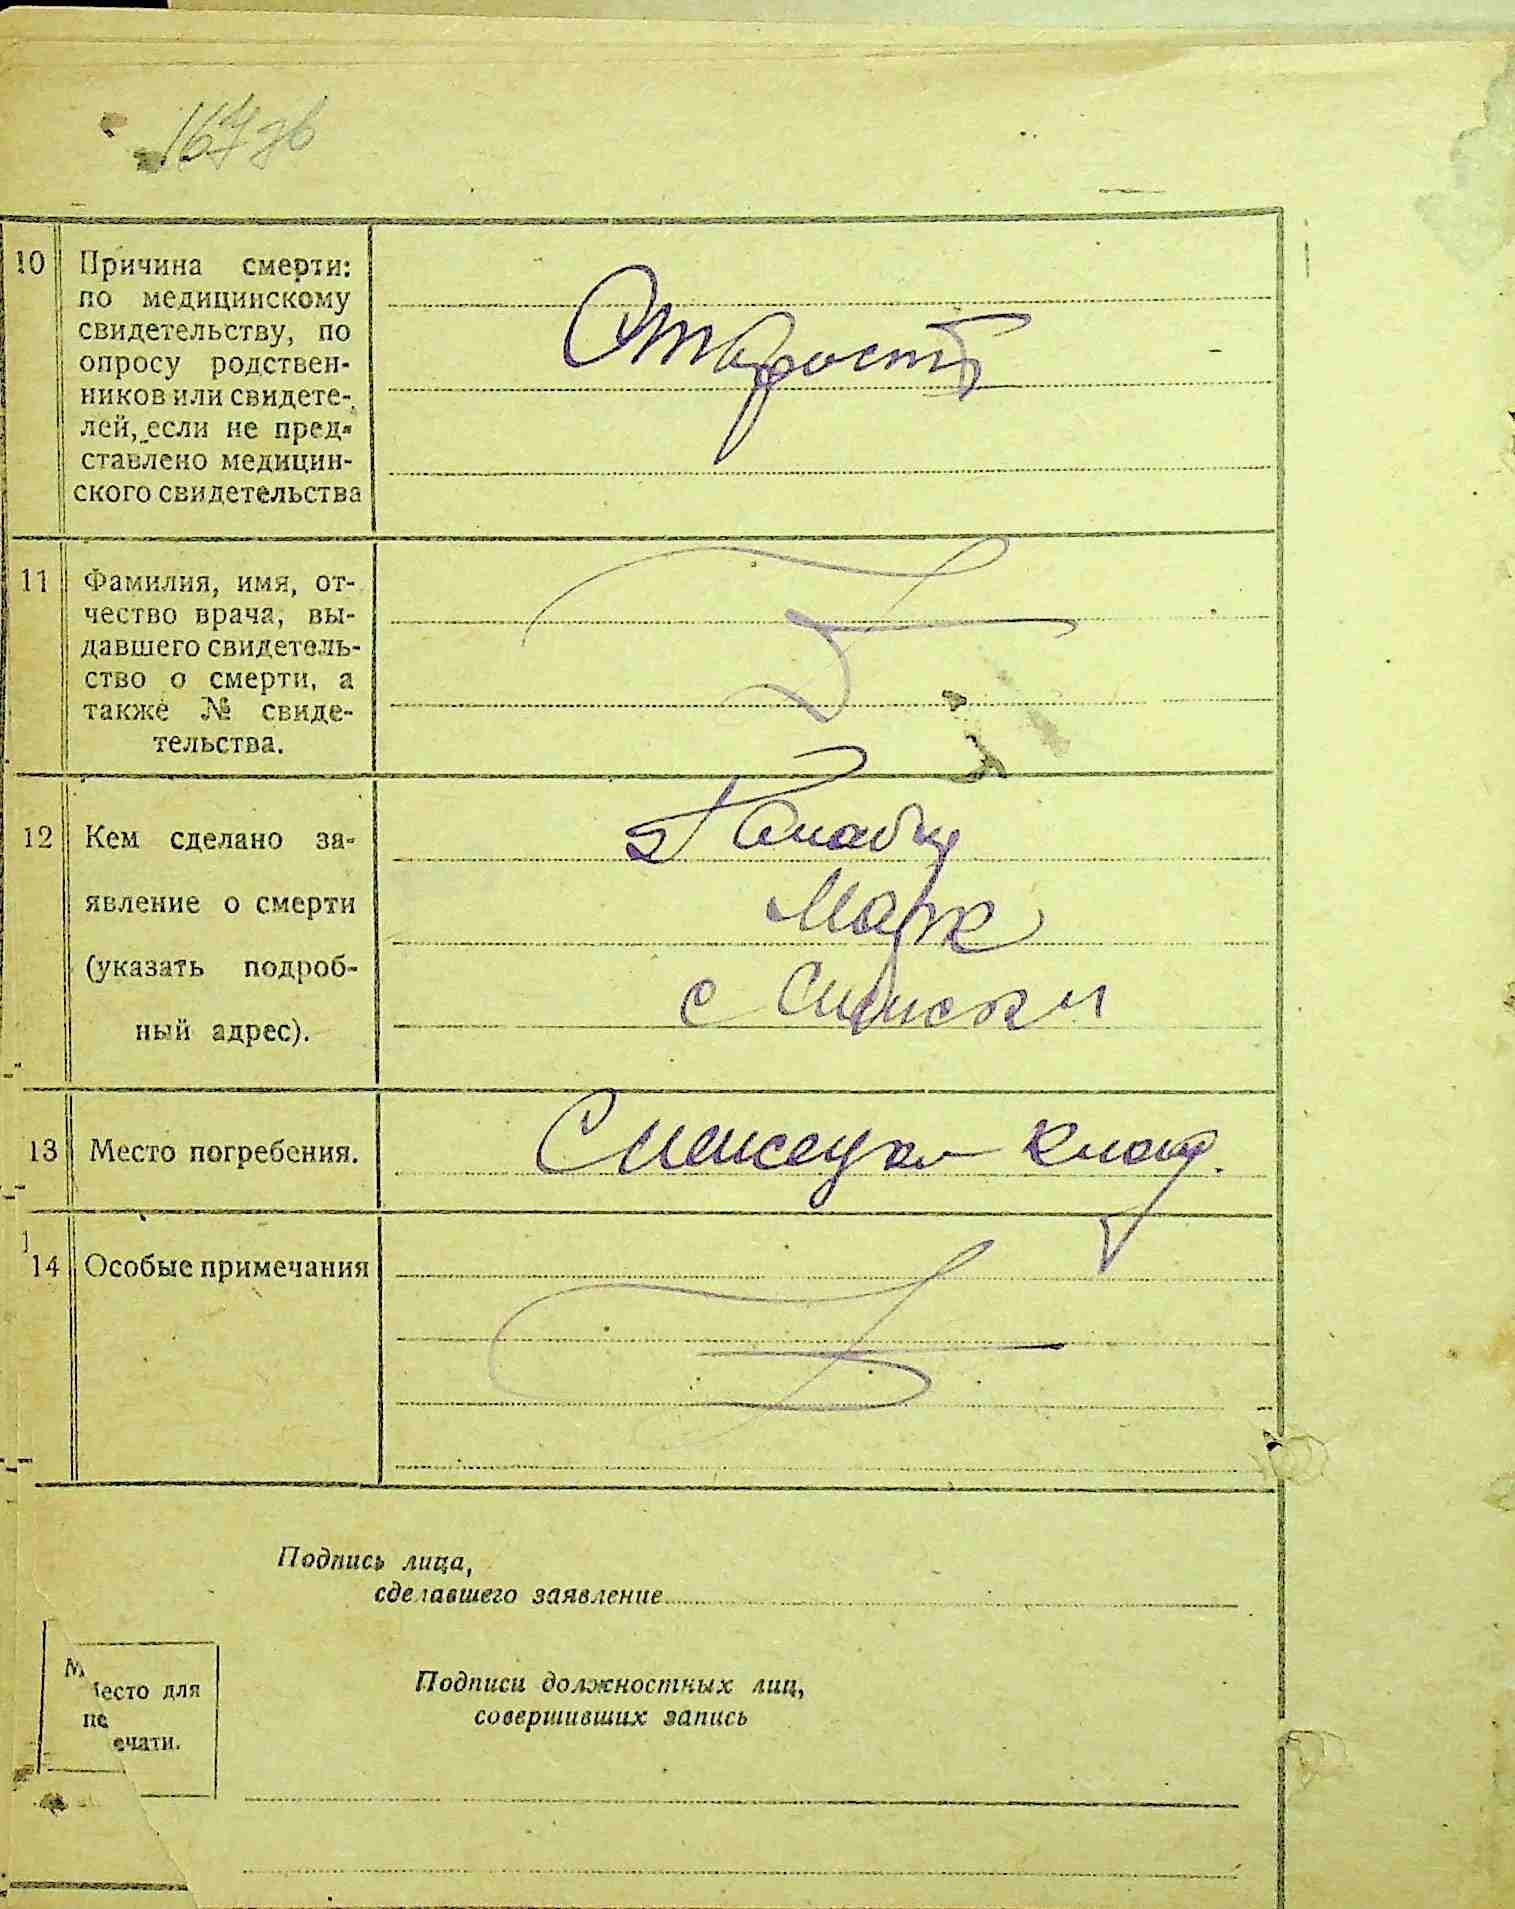 167 зв
10 Причина смерти:
по медицинскому
свидетельству, по
опросу родствен-
ников или свидете-
лей, если не пред-
ставлено медицин-
ского свидетельства
Старость
11 Фамилия, имя, от-
чество врача, вы-
давшего свидетель-
ство о смерти, а
также № свиде-
тельства.
12 Кем сделано за-
явление о смерти
(указать подроб-
ный адрес).
Марк
с
13 Место погребения.
14 Особые примечания
Подпись лица,
сделавшего заявление
Место для
печати.
Подписи должностных лиц,
совершивших запись